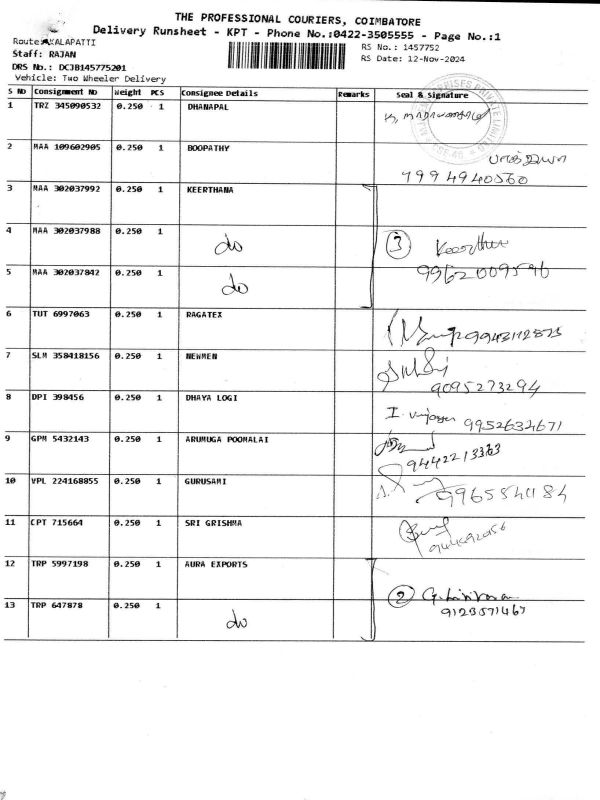 THE PROFESSIONAL COURIERS, COIMBATORE
Delivery Runsheet - KPT - Phone No.:0422-3505555 - Page No.:1
Route: KALAPATTI
RS No.: 1457752
Staff: RAJAN
RS Date: 12-Nov-2024
DRS No.: DCJB145775201
Vehicle: Two Wheeler Delivery
S No Consignment No Weight PCS Consignee Details Remarks Seal & Signature
1 TRZ 345090532 0.250 1 DHANAPAL
2 MAA 109602905 0.250 1 BOOPATHY
7994940560
3 MAA 302037992 0.250 1 KEERTHANA
4 MAA 302037988 0.250 1 do 3 Keerthu
9962009596
5 MAA 302037842 0.250 1 do
6 TUT 6997063 0.250 1 RAGATEX 9943112875
7 SLM 358418156 0.250 1 NEWMEN
9095273294
8 DPI 398456 0.250 1 DHAYA LOGI 9952632671
9 GPM 5432143 0.250 1 ARUMUGA POOMALAI
9442213363
10 VPL 224168855 0.250 1 GURUSAMI
11 CPT 715664 0.250 1 SRI GRISHMA
12 TRP 5997198 0.250 1 AURA EXPORTS
2
9123571467
13 TRP 647878 0.250 1 do